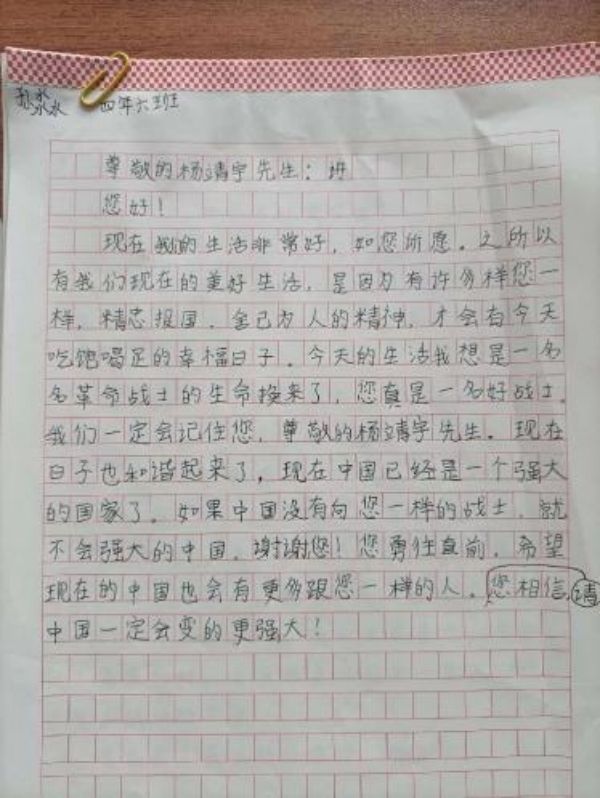 孙冰冰 四年六班
尊敬的杨靖宇先生：
您好！
现在我的生活非常好，如您所愿。之所以
有我们现在的美好生活，是因为有许多样您一
样，精忠报国，舍己为人的精神，才会有今天
吃饱喝足的幸福日子。今天的生活我想是一名
名革命战士的生命换来了，您真是一名好战士。
我们一定会记住您，尊敬的杨靖宇先生。现在
日子也和谐起来了，现在中国已经是一个强大
的国家了。如果中国没有向您一样的战士，就
不会强大的中国，谢谢您！您勇往直前，希望
现在的中国也会有更多跟您一样的人。您相信请
中国一定会变的更强大！